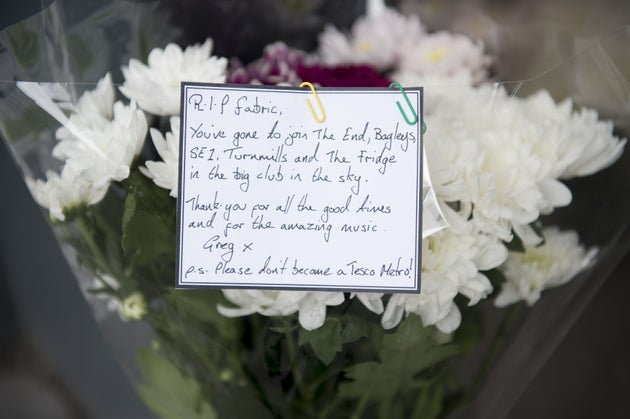 R.I.P Fabric,
You've gone to join The End, Bagleys,
SE1, Turnmills and The Fridge
in the big club in the sky.
Thank-you for all the good times
and for the amazing music.
Greg x
p.s. Please don't become a Tesco Metro!